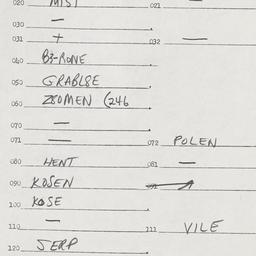 020 MIST 021 —
030 —
031 + 032 —
040 B3-RONE
050 GRABL8E
060 Z80MEN (246
070 —
071 — 072 POLEN
080 HENT 081 —
090 KOSEN
100 KOSE
110 — 111 VILE
120 SERP